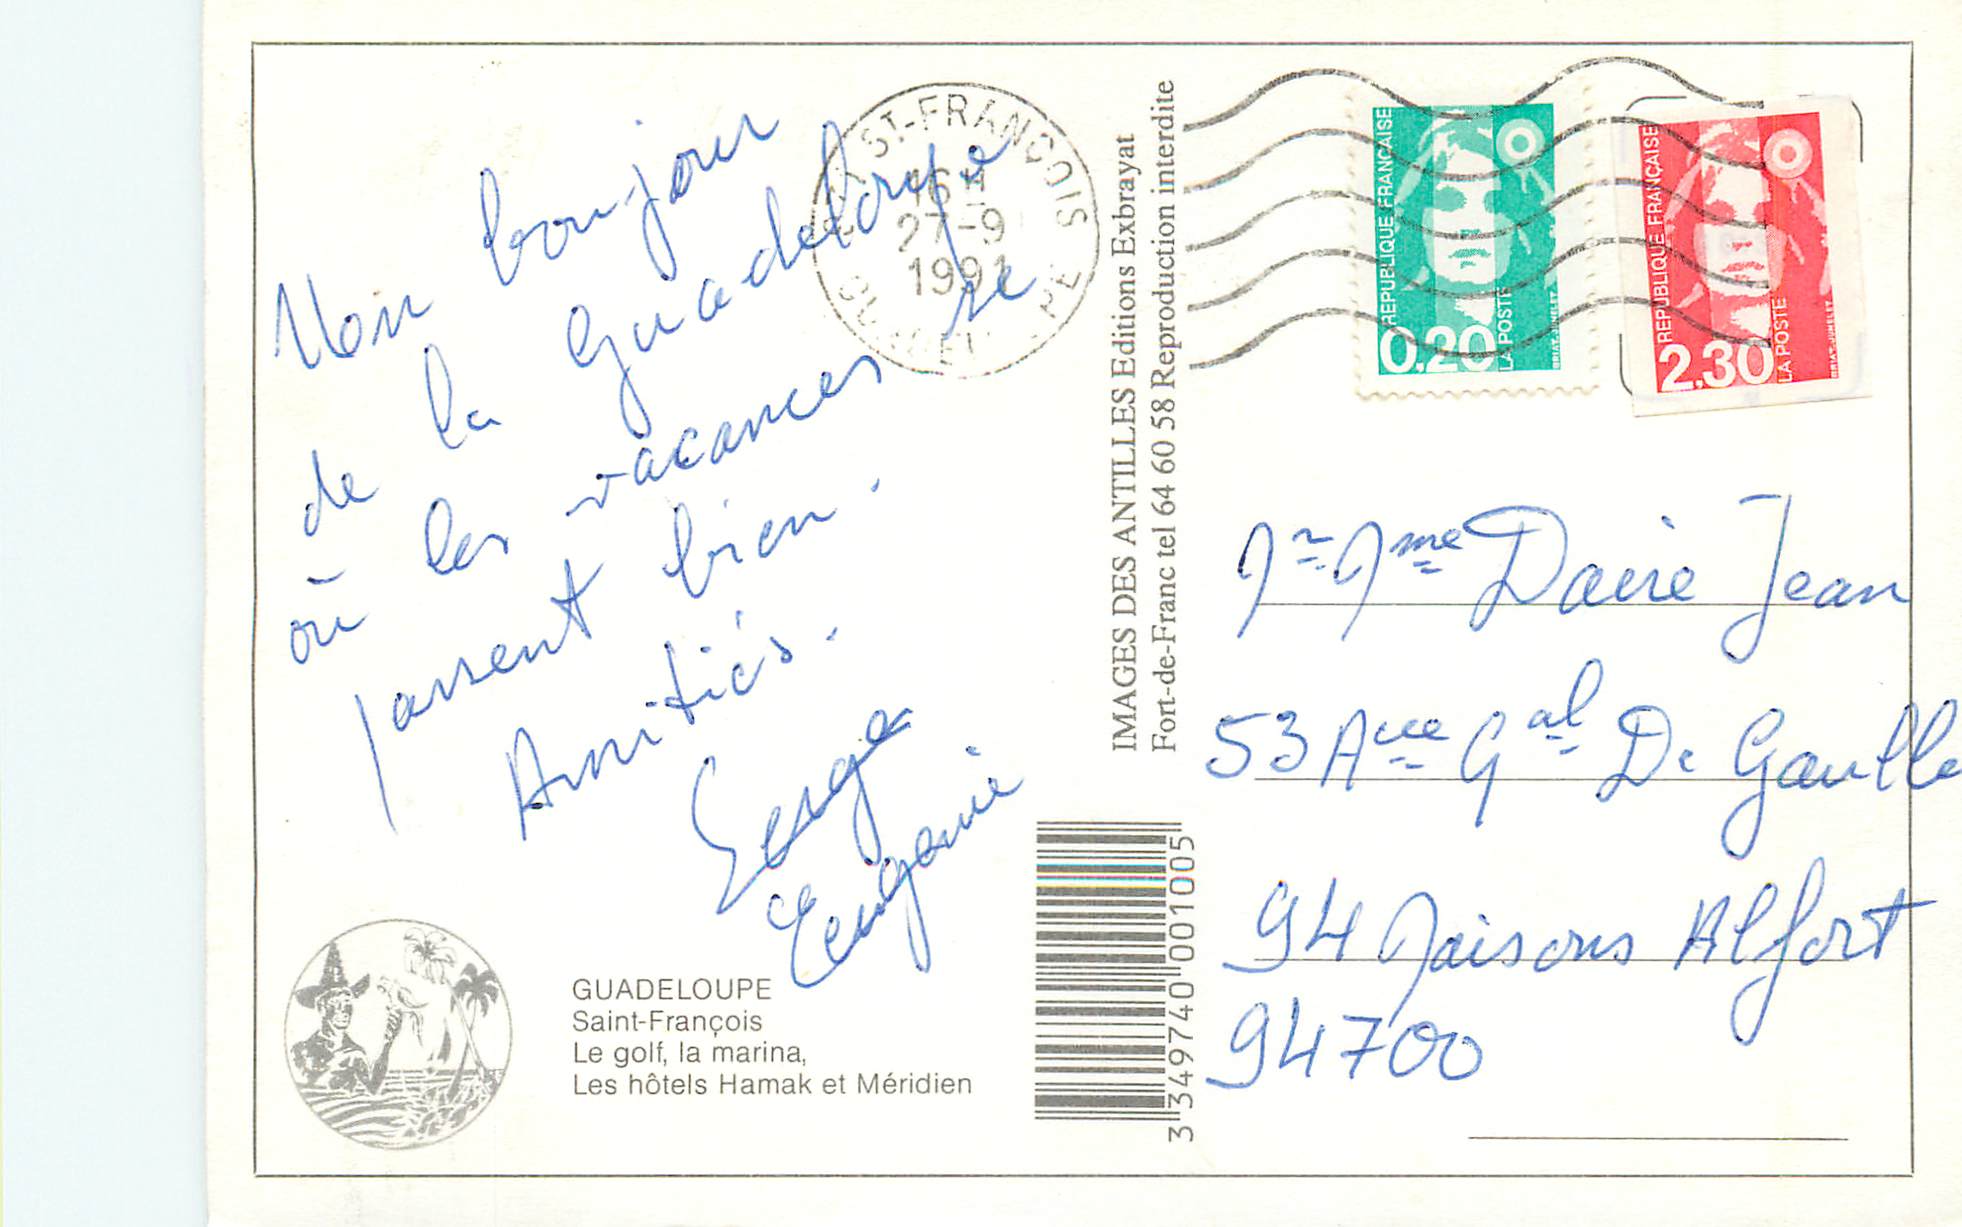 Mon bonjour
de la Guadeloupe
où les vacances se
passent bien.
Amitiés.
Serge
Eugénie
GUADELOUPE
Saint-François
Le golf, la marina,
Les hôtels Hamak et Méridien
ST-FRANCOIS
16 H
27-9
1991
GUADELOUPE
IMAGES DES ANTILLES Editions Exbrayat
Fort-de-Franc tel 64 60 58 Reproduction interdite
3 349740 001005
REPUBLIQUE FRANÇAISE
0,20
LA POSTE
BRIAT-JUMELET
REPUBLIQUE FRANÇAISE
2,30
LA POSTE
BRIAT-JUMELET
Mr Mme Daire Jean
53 Aue Gal De Gaulle
94 Maisons Alfort
94700